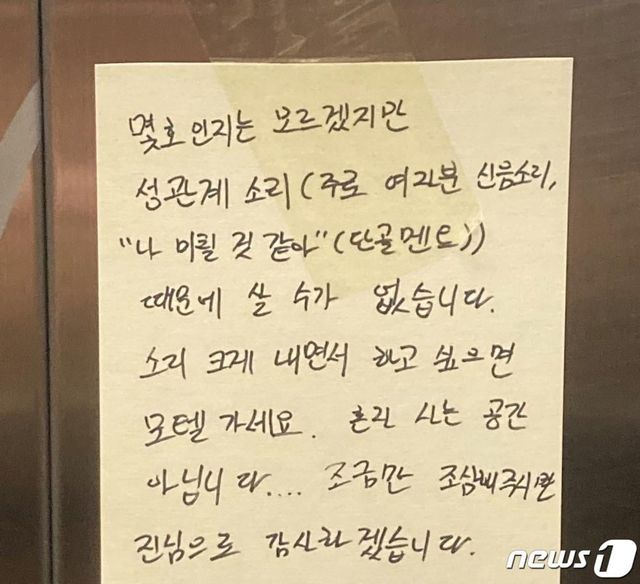 몇호인지는 모르겠지만
성관계 소리 (주로 여자분 신음소리,
"나 미칠 것 같아" (단골멘트))
때문에 살 수가 없습니다.
소리 크게 내면서 하고 싶으면
모텔 가세요. 혼자 사는 공간
아닙니다.... 조금만 조심해주시면
진심으로 감사하겠습니다.
news1